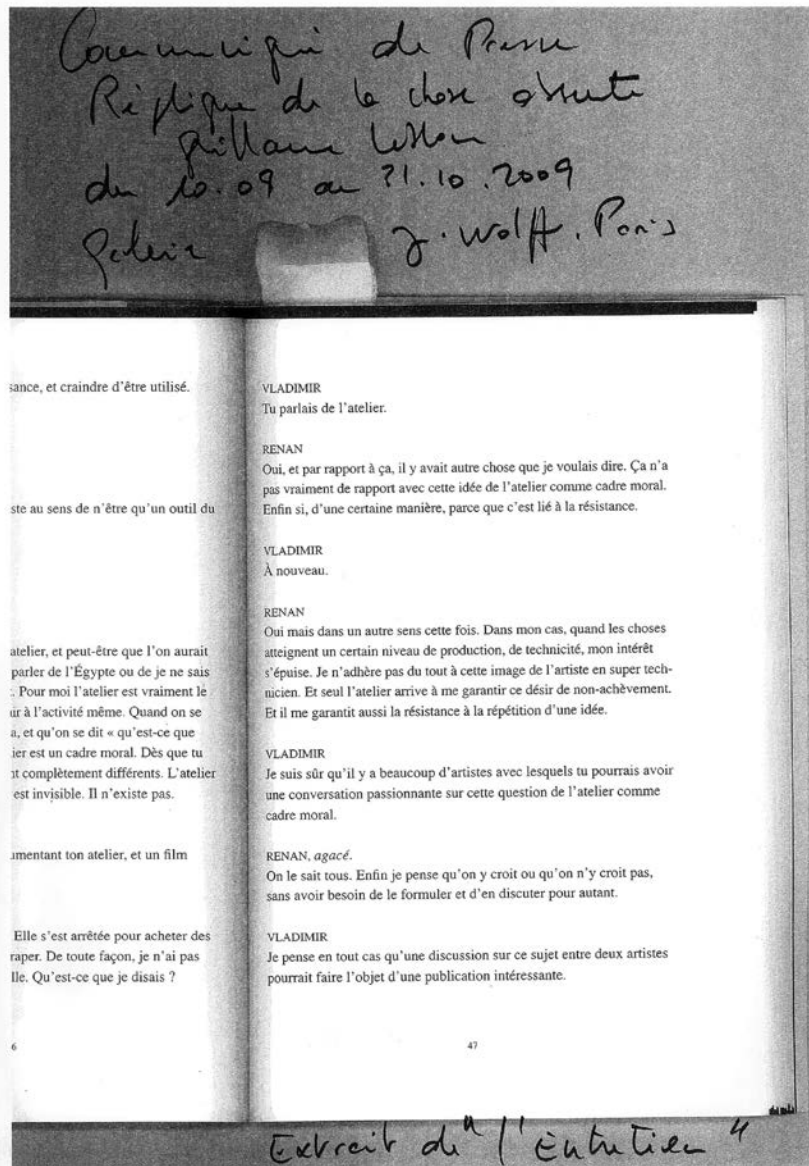 Communiqué de Presse
Réplique de la chose absente
Guillaume Leblon
du 10.09 au 31.10.2009
Galerie J. Wolff. Paris
sance, et craindre d'être utilisé.
ste au sens de n'être qu'un outil du
atelier, et peut-être que l'on aurait
parler de l'Égypte ou de je ne sais
. Pour moi l'atelier est vraiment le
ir à l'activité même. Quand on se
a, et qu'on se dit « qu'est-ce que
ier est un cadre moral. Dès que tu
nt complètement différents. L'atelier
est invisible. Il n'existe pas.
umentant ton atelier, et un film
Elle s'est arrêtée pour acheter des
raper. De toute façon, je n'ai pas
lle. Qu'est-ce que je disais ?
6
VLADIMIR
Tu parlais de l'atelier.
RENAN
Oui, et par rapport à ça, il y avait autre chose que je voulais dire. Ça n'a
pas vraiment de rapport avec cette idée de l'atelier comme cadre moral.
Enfin si, d'une certaine manière, parce que c'est lié à la résistance.
VLADIMIR
À nouveau.
RENAN
Oui mais dans un autre sens cette fois. Dans mon cas, quand les choses
atteignent un certain niveau de production, de technicité, mon intérêt
s'épuise. Je n'adhère pas du tout à cette image de l'artiste en super tech-
nicien. Et seul l'atelier arrive à me garantir ce désir de non-achèvement.
Et il me garantit aussi la résistance à la répétition d'une idée.
VLADIMIR
Je suis sûr qu'il y a beaucoup d'artistes avec lesquels tu pourrais avoir
une conversation passionnante sur cette question de l'atelier comme
cadre moral.
RENAN, agacé.
On le sait tous. Enfin je pense qu'on y croit ou qu'on n'y croit pas,
sans avoir besoin de le formuler et d'en discuter pour autant.
VLADIMIR
Je pense en tout cas qu'une discussion sur ce sujet entre deux artistes
pourrait faire l'objet d'une publication intéressante.
47
Extrait de "l'Entretien"